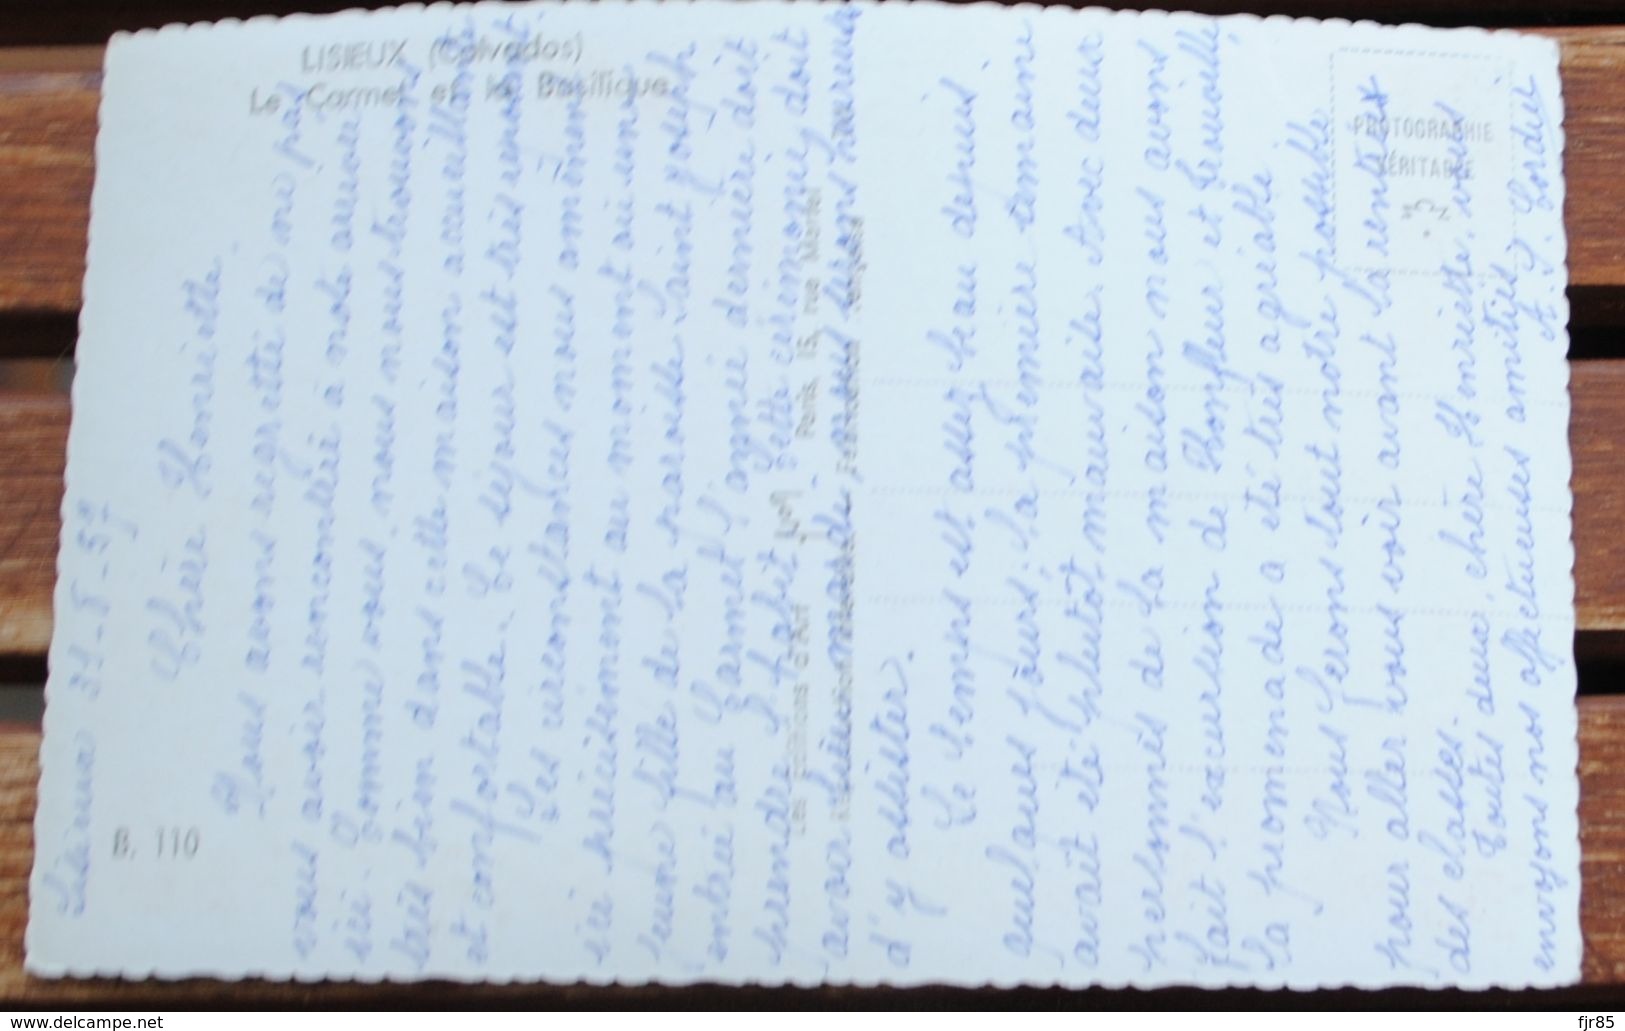 LISIEUX (Calvados)
Le Carmel et la Basilique
B. 110
PHOTOGRAPHIE
VÉRITABLE
Les Éditions d'Art
Paris, 15, rue Martel
Lisieux 31-8-57
Chère Henriette.
Nous avons regretté de ne pas
vous avoir rencontrée à notre arrivée
ici. Comme vous, nous nous trouvons
très bien dans cette maison accueillante
et confortable. Le séjour est très reposant.
Les circonstances nous amènent
ici précisément au moment où une
jeune fille de la paroisse Saint Joseph
entrée au Carmel l'année dernière doit
prendre l'habit. Cette cérémonie doit
avoir lieu mardi, nous serons heureux
d'y assister.
Le temps est assez beau depuis
quelques jours; la première semaine
avait été plutôt mauvaise. Avec deux
personnes de la maison nous avons
fait l'excursion de Honfleur et Trouville,
la promenade a été très agréable
Nous ferons tout notre possible
pour aller vous voir avant la rentrée
des classes.
Toutes deux, chère Henriette, vous
envoyons nos affectueuses amitiés
A. S. Cordier
delcampe.net
fjr85